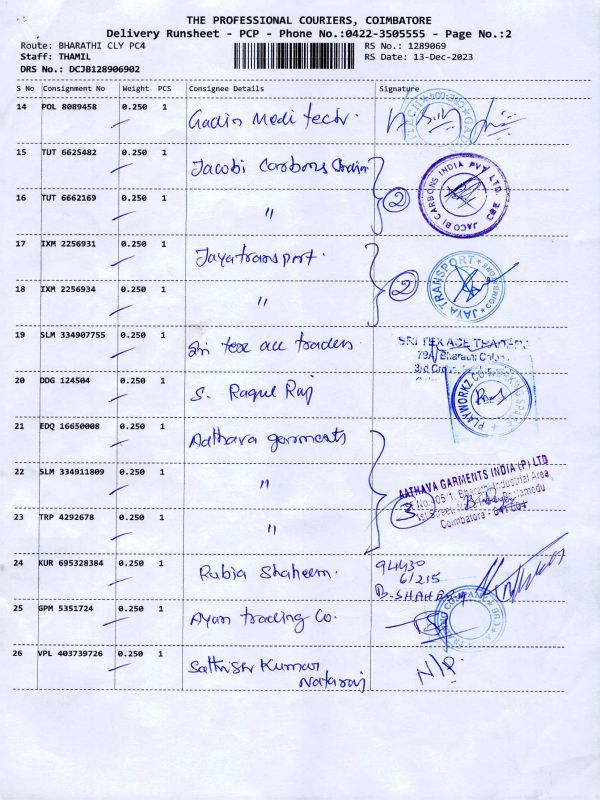 THE PROFESSIONAL COURIERS, COIMBATORE
Delivery Runsheet - PCP - Phone No.:0422-3505555 - Page No.:2
Route: BHARATHI CLY PC4 RS No.: 1289069
Staff: THAMIL RS Date: 13-Dec-2023
DRS No.: DCJB128906902
S No Consignment No Weight PCS Consignee Details Signature
14 POL 8089458 0.250 1 Gadin Medi tech.
15 TUT 6625482 0.250 1 Jacobi Carbons
16 TUT 6662169 0.250 1 " 2
JACOBI CARBONS INDIA PVT. LTD. CBE
17 IXM 2256931 0.250 1 Jayatransport.
18 IXM 2256934 0.250 1 " 2
JAYA TRANSPORT COIMBATORE
19 SLM 334907755 0.250 1 Sri tex ace traders
SRI TEX ACE TRADERS
79A, Bharathi Colony
3rd Cross
20 DDG 124504 0.250 1 S. Ragul Raj
PLAYWORKZ CO-WORKING SPACE
21 EDQ 16650008 0.250 1 Aathava garments
22 SLM 334911809 0.250 1 "
AATHAVA GARMENTS INDIA (P) LTD
Bharathi Industrial Area
1st Street
Coimbatore - 641 004
23 TRP 4292678 0.250 1 " 3
24 KUR 695328384 0.250 1 Rubia Shaheem. 94430
61215
25 GPM 5351724 0.250 1 Ayan trading Co.
26 VPL 403739726 0.250 1 Sathish Kumar N/P.
Nataraj